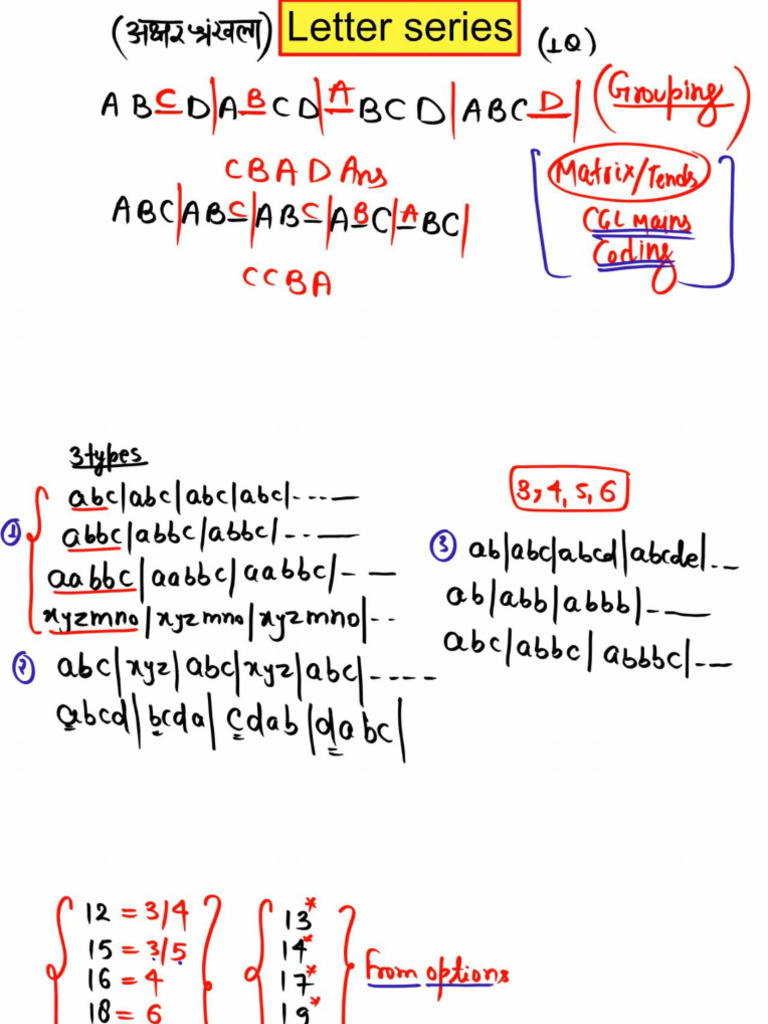 (अक्षर श्रंखला) Letter series (1Q)
A B C D|A B C D|A B C D|A B C D| (Grouping)
C B A D Ans
[Matrix/Tends
A B C|A B C|A B C|A B C|A B C|
CGL mains
Coding]
C C B A
3 types
① abc|abc|abc|abc|----
abbc|abbc|abbc|----
aabbc|aabbc|aabbc|----
xyzmno|xyzmno|xyzmno|--
② abc|xyz|abc|xyz|abc|----
abcd|bcda|cdab|dabc|
3, 4, 5, 6
③ ab|abc|abcd|abcde|..--
ab|abb|abbb|----
abc|abbc|abbbc|---
12 = 3/4
15 = 3/5
16 = 4
18 = 6
13*
14*
17*
19*
From options